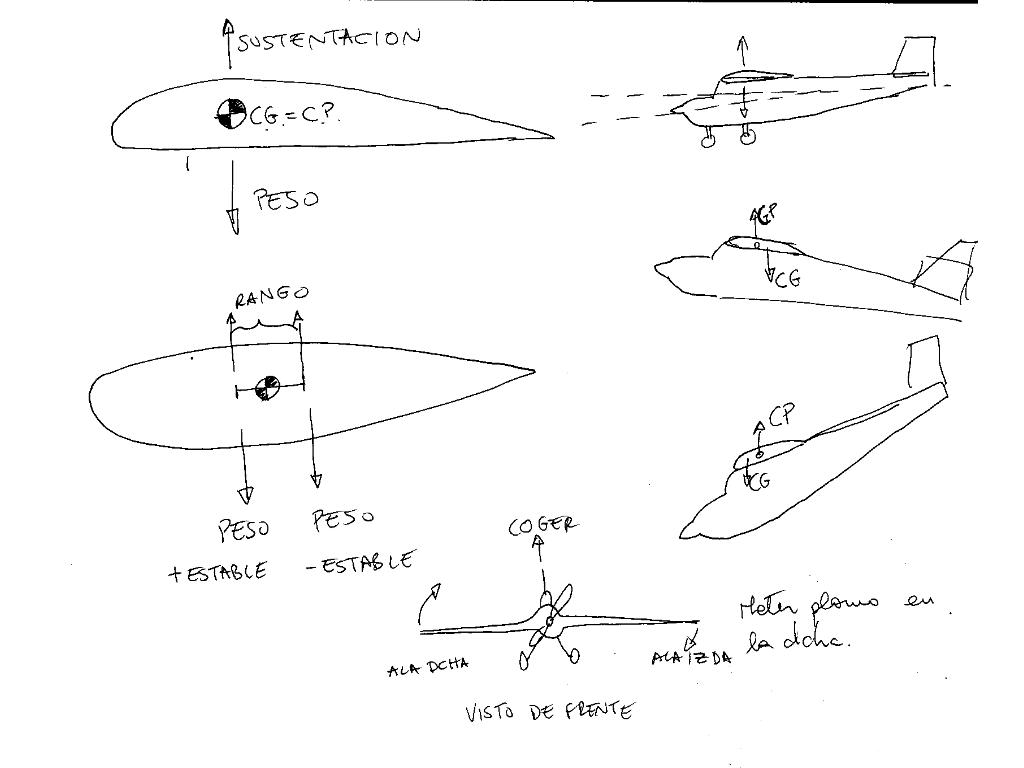 SUSTENTACION
CG.=C.P.
PESO
RANGO
PESO
+ESTABLE
PESO
-ESTABLE
CP
CG
CP
CG
COGER
ALA DCHA
ALA IZDA
VISTO DE FRENTE
Meter plomo en
la dcha.